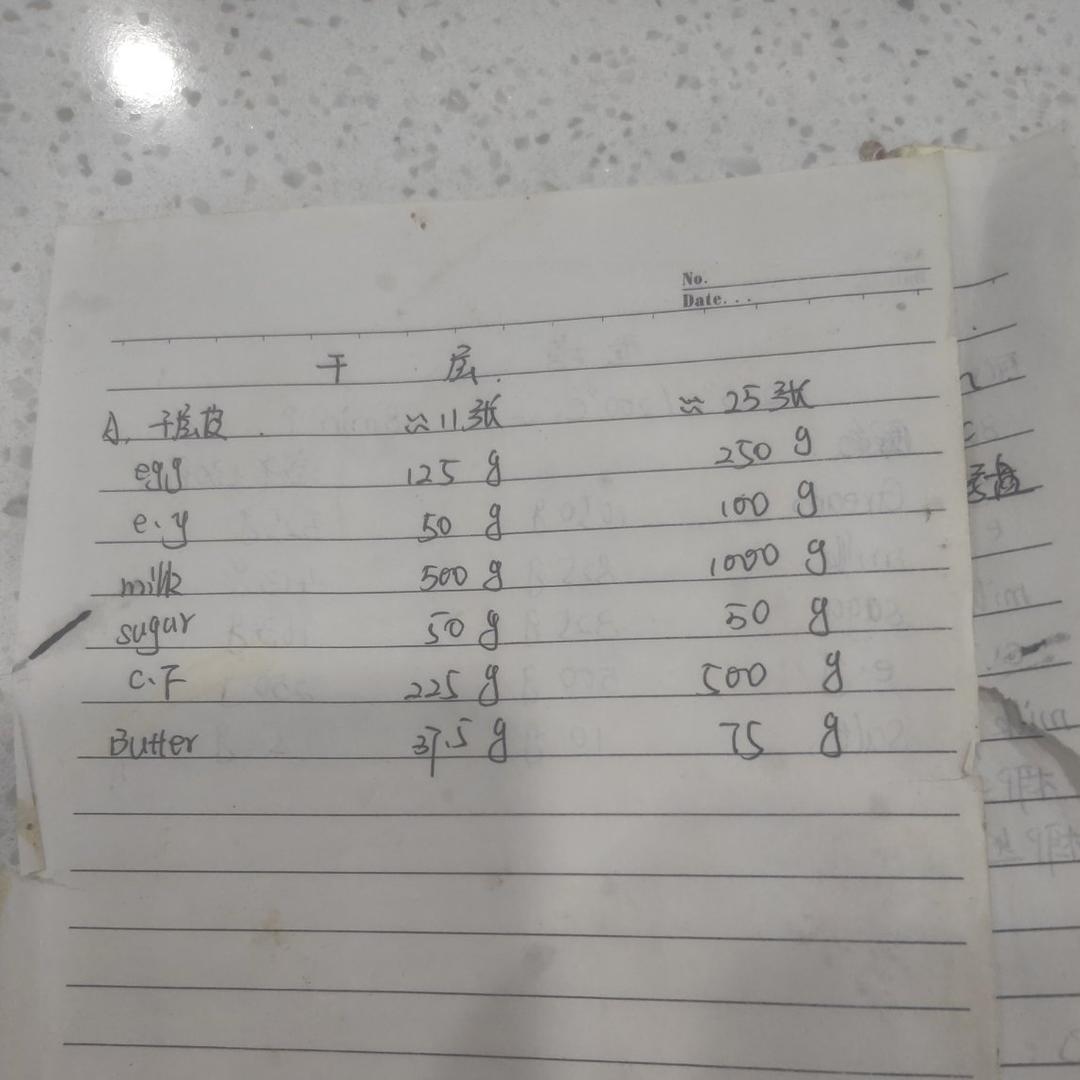 No.
Date. . .
千 层.
A. 千层皮. ≈ 11张 ≈ 25张
egg 125 g 250 g
e.y 50 g 100 g
milk 500 g 1000 g
sugar 50 g 50 g
C.F 225 g 500 g
Butter 37.5 g 75 g